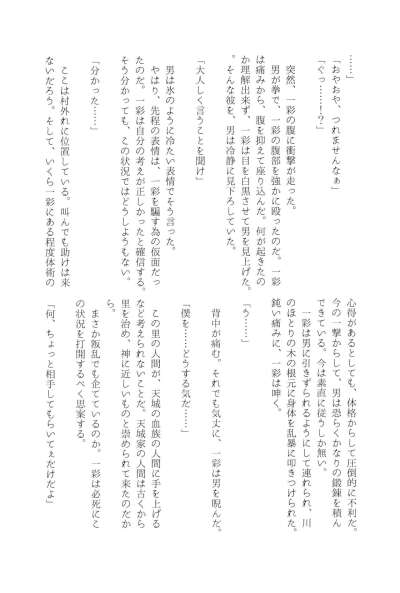 ……」
「おやおや、つれませんなぁ」
「ぐっ……！？」
　突然、一彩の腹に衝撃が走った。
　男が拳で、一彩の腹部を強かに殴ったのだ。一彩
は痛みから、腹を抑えて座り込んだ。何が起きたの
か理解出来ず、一彩は目を白黒させて男を見上げた
。そんな彼を、男は冷静に見下ろしていた。
「大人しく言うことを聞け」
　男は氷のように冷たい表情でそう言った。
　やはり、先程の表情は、一彩を騙す為の仮面だっ
たのだ。一彩は自分の考えが正しかったと確信する。
そう分かっても、この状況ではどうしようもない。
「分かった……」
　ここは村外れに位置している。叫んでも助けは来
ないだろう。そして、いくら一彩にある程度体術の
心得があるとしても、体格からして圧倒的に不利だ。
今の一撃からして、男は恐らくかなりの鍛錬を積ん
できている。今は素直に従うしか無い。
　一彩は男に引きずられるようにして連れられ、川
のほとりの木の根元に身体を乱暴に叩きつけられた。
鈍い痛みに、一彩は呻く。
「う……」
　背中が痛む。それでも気丈に、一彩は男を睨んだ。
「僕を……どうする気だ……」
　この里の人間が、天城の血族の人間に手を上げる
など考えられないことだ。天城家の人間は古くから
里を治め、神に近しいものと崇められて来たのだか
ら。
　まさか叛乱でも企てているのか。一彩は必死にこ
の状況を打開するべく思案する。
「何、ちょっと相手してもらいてぇだけだよ」